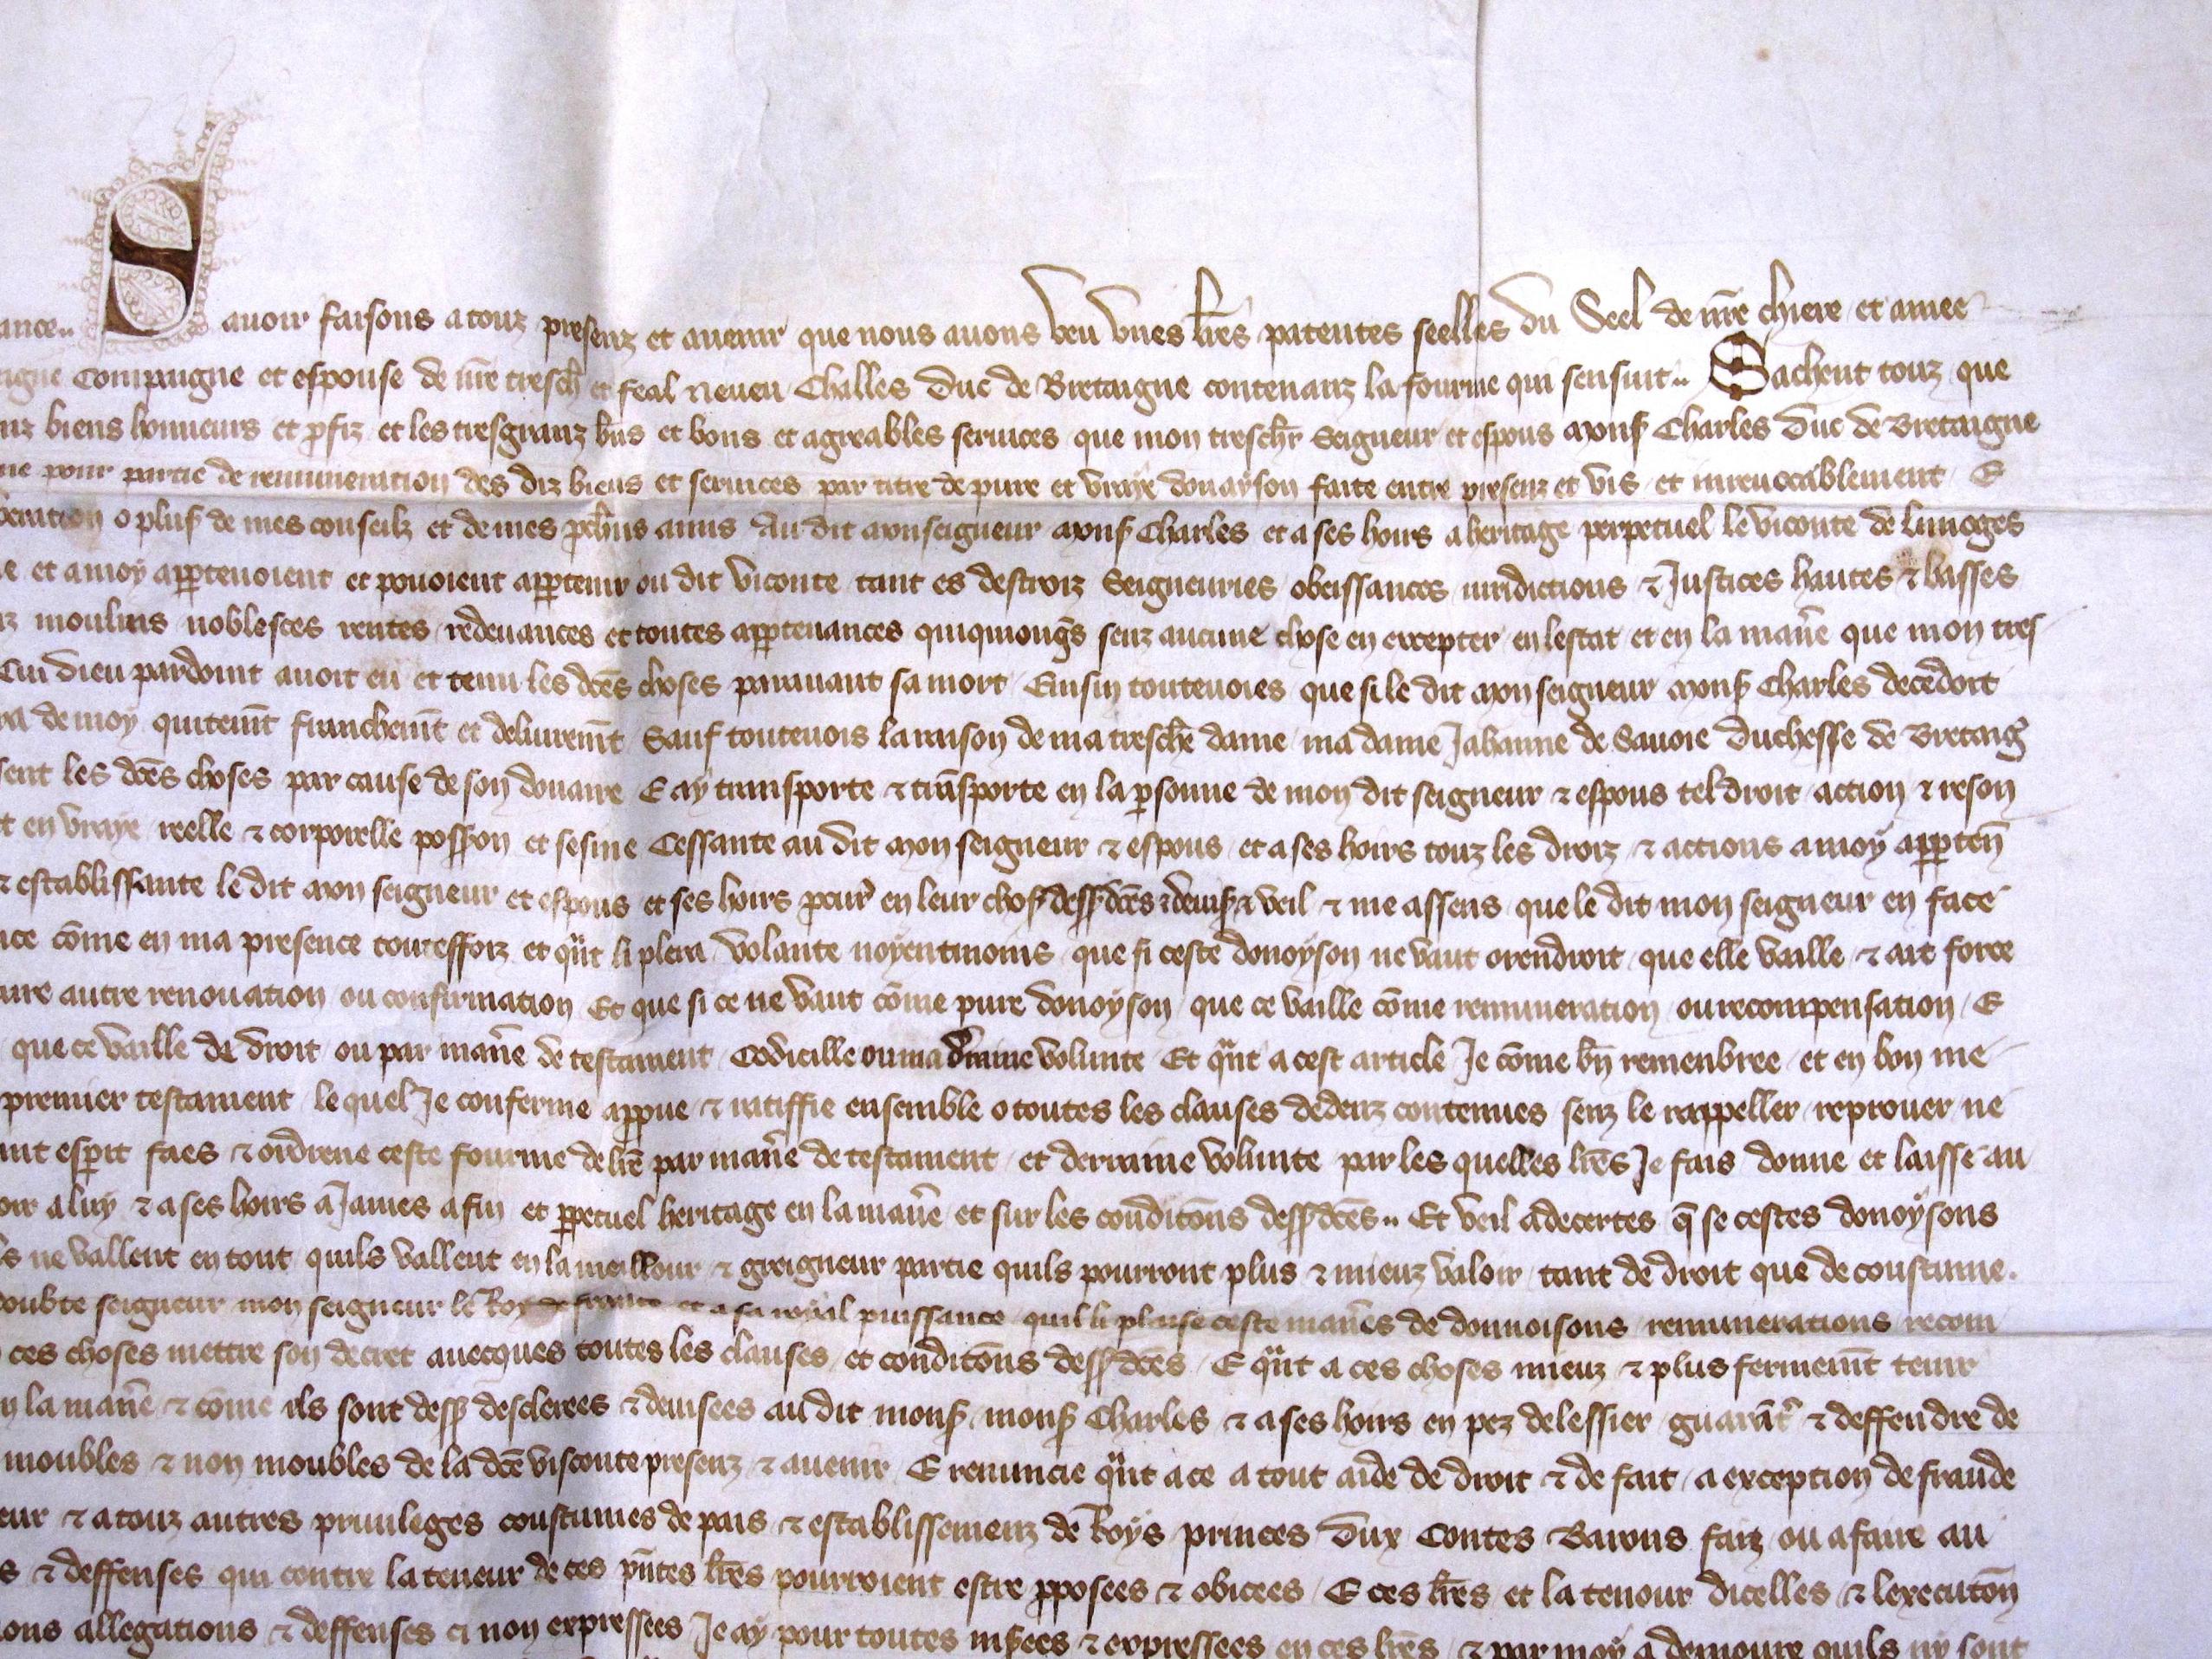 ance.. Savoir faisons a touz presenz et avenir que nous avons veu unes lr̃es patentes seelles du Seel de nr̃e chiere et amee
Compaigne et espouse de nr̃e tresch̃ et feal neveu Challes Duc de Bretaigne contenanz la fourme qui sensuit.. Sachent touz que
biens honneurs et ꝓfiz et les tresgranz bñs et bons et agreables services que mon tresch̃r Seigneur et espous monsʳ Charles Duc de Bretaigne
ne pour partie de remuneration des diz biens et services par titre de pure et vraye donayson faite entre presenz et vis et inrevocablement E
o plus de mes conseilz et de mes ꝓch̃ns amis Au dit monseigneur monsʳ Charles et a ses hoirs a heritage perpetuel le viconte de Limoges
et a moy aꝑptenoient et povoient aꝑptenir ou dit viconte tant es destroiz Seigneuries obeissances juridictions & Justices hautes & basses
moulins noblesces rentes redevances et toutes aꝑptenances quiqũonq̃s senz aucune chose en excepter en lestat et en la manẽre que mon tres
Cui Dieu pardoint avoit eu et tenu les dc̃es choses paravant sa mort Einsin toutevoies que si le dit monseigneur monsʳ Charles decedoit
de moy quitem̃t franchem̃t et delivrem̃t Sauf toutevois la raison de ma tresch̃e dame ma dame Jahanne de Savoie Duchesse de Bretaig̃
les dc̃es choses par cause de son douaire E ay transporte & trãsporte en la ꝑsonne de mon dit seigneur & espous tel droit action & reson
en vraye reelle & corporelle posson̄ et sesine Cessante au dit monseigneur & espous et a ses hoirs touz les droiz & actions a moy aꝑpten̄
& establissante le dit monseigneur et espous et ses hoirs en leur chos̃ dess̃dc̃es & veil & me assens que le dit mon seigneur en face
cõme en ma presence toutesforz et q̃nt li plera Volante noyentmoins que si ceste donoyson ne vaut orendroit que elle vaille & ait force
autre renovation ou confirmation Et que si ce ne vaut cõme pure donoyson que ce vaille cõme remuneration ou recompensation E
que ce vaille de droit ou par manẽre de testament Codicille ou ma d̃raine volunte Et q̃nt a cest article Je cõme bñ remenbree et en bon me
premier testament le quel Je conferme aꝑpue & ratiffie ensemble o toutes les clauses dedenz contenues senz le rappeller reprover ne
esprit faes & ordrene ceste fourme de lr̃e par manẽre de testament et derraine volunte par les quelles lr̃es Je fais donne et laisse au
a luy & a ses hoirs a James a fin et ꝑpetuel heritage en la manẽre et sur les conditõns dess̃dc̃es.. Et veil adecertes q̃ se cestes donoysons
ne vallent en tout quils vallent en la meillour & greigneur partie quils pourront plus & mieuz valoir tant de droit que de coustume.
doubte seigneur mon seigneur le Roy de France et a sa royal puissance quil li plaise ceste manẽres de donnoisons remunerations recom
ces choses mettre son decret avecques toutes les clauses et conditõns dess̃dc̃es E q̃nt a ces choses mieuz & plus fermem̃t tenir
la manẽre & cõme ils sont dess̃ desclerees & devisees au dit monsʳ monsʳ Charles & a ses hoirs en pez delessier guarãt̃ & deffendre de
moubles & non moubles de la dc̃e visconte presenz & avenir E renuncie q̃nt a ce a tout aide de droit & de fait a exception de fraude
& a touz autres privileges coustumes de pais & establissemenz de Roys princes Dux Contes Barons faiz ou a faire au
& deffenses qui contre la teneur de ces p̃ntes lr̃es pourroient estre ꝓposees & obicees E ces lr̃es et la tenour dicelles & lexecutõn
allegations & deffenses ci non expressees Je ay pour toutes ins̃ees & expressees en ces lr̃es & par moy a demoure quils ny sont